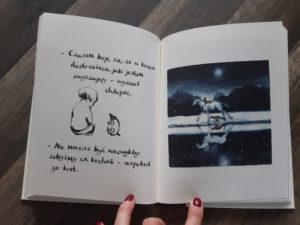 - Czasem boję się, że w końcu
dostrzeżecie, jaki jestem
zwyczajny - wyznał
chłopiec.
- Nie musisz być niezwykły,
żebyśmy cię kochali - szepnął
go kret.